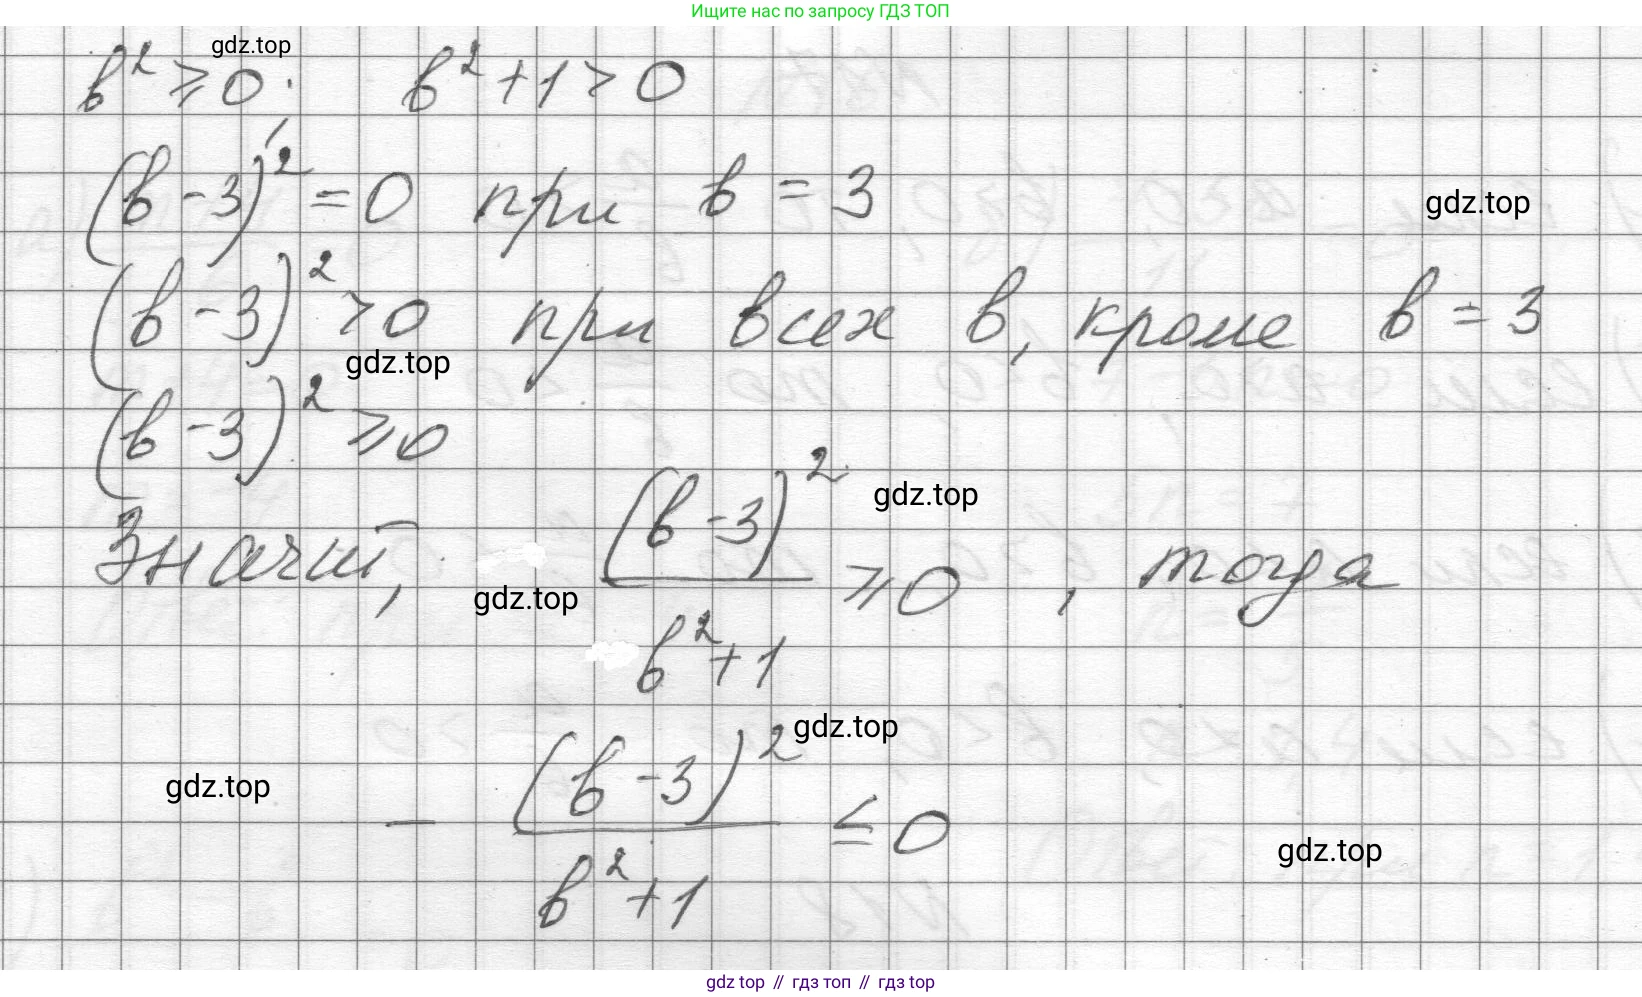 Ищите нас по запросу ГДЗ ТОП
gdz.top
b² ⩾ 0. b² + 1 > 0
(b - 3)² = 0 при b = 3
gdz.top
(b - 3)² > 0 при всех b, кроме b = 3
gdz.top
(b - 3)² ⩾ 0
gdz.top
Значит, (b - 3)² / b² + 1 ⩾ 0, тогда
gdz.top
gdz.top
gdz.top
- (b - 3)² / b² + 1 ≤ 0
gdz.top
gdz top // гдз топ // гдз top